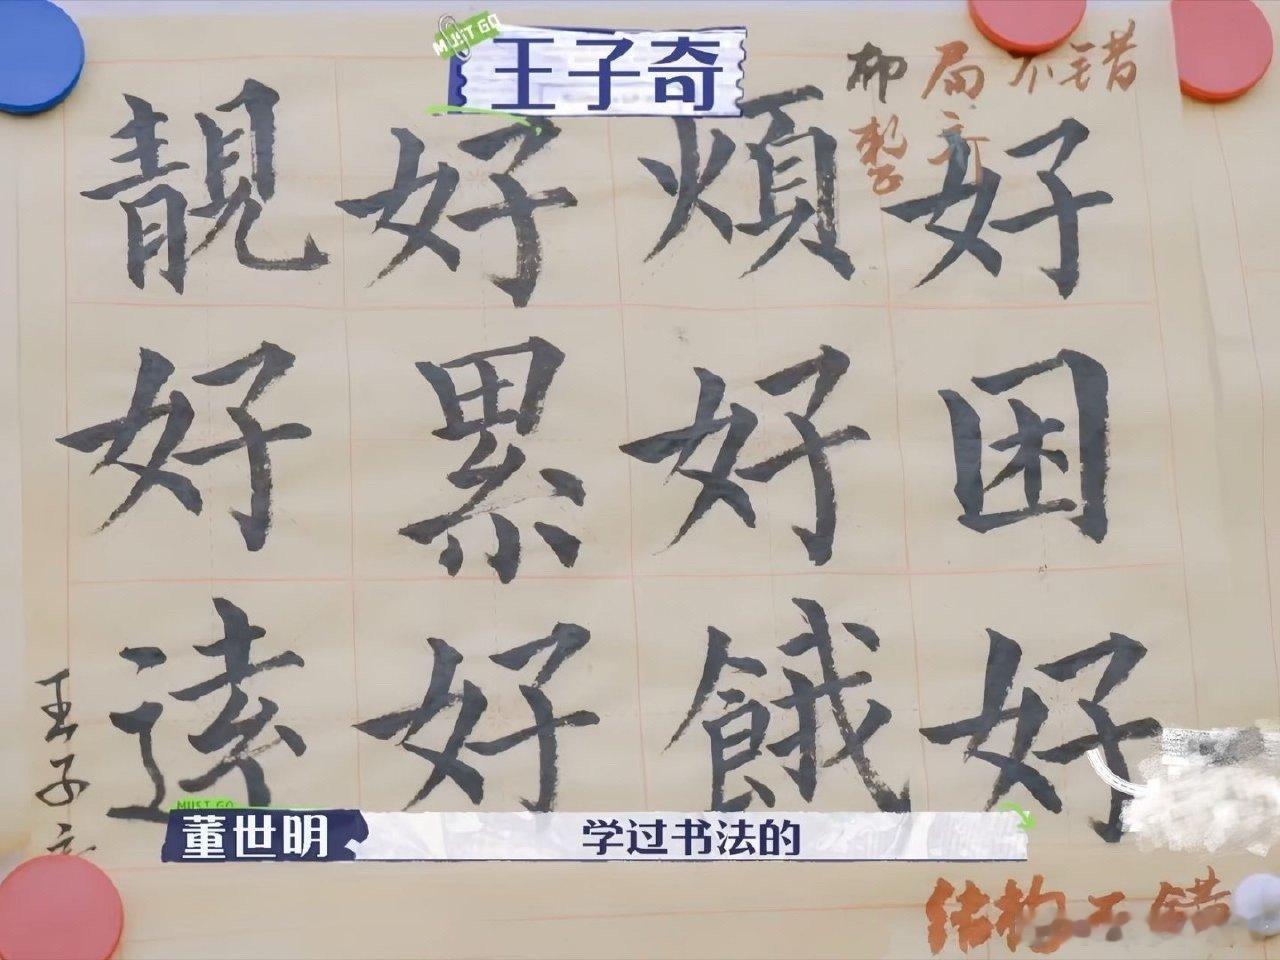 MUST GO
王子奇
布局不错
整齐
好困好
煩好餓
好累好
靚好遠
王子
结构不错
MUST GO
董世明
学过书法的